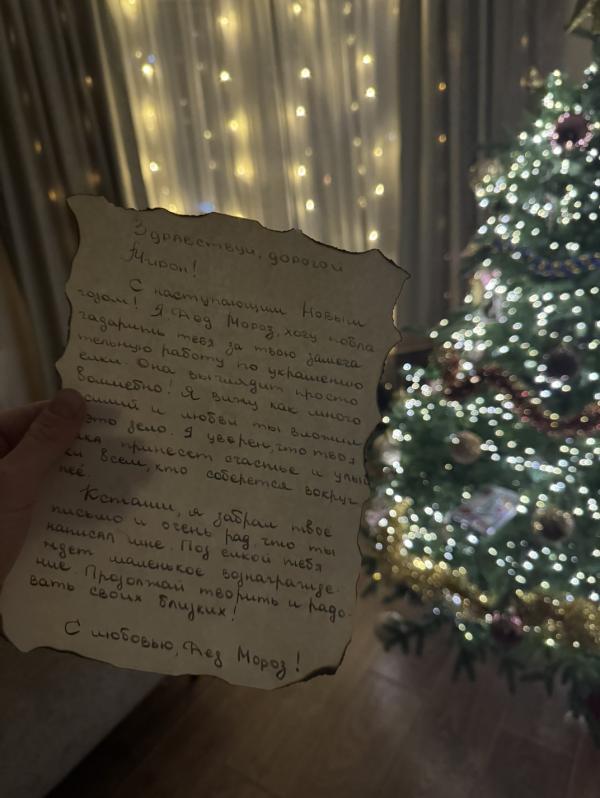 Здравствуй, дорогой
Мирон!
С наступающим Новым
годом! Я, Дед Мороз, хочу побла
годарить тебя за твою замеча
тельную работу по украшению
елки. Она выглядит просто
волшебно! Я вижу как много
усилий и любви ты вложил
это дело. Я уверен, что твоя
лка принесет счастье и улыб
ки всем, кто соберется вокруг
неё.
Кстати, я забрал твое
письмо и очень рад, что ты
написал мне. Под елкой тебя
ждет маленькое вознагражде-
ние. Продолжай творить и радо-
вать своих близких!
С любовью, Дед Мороз!